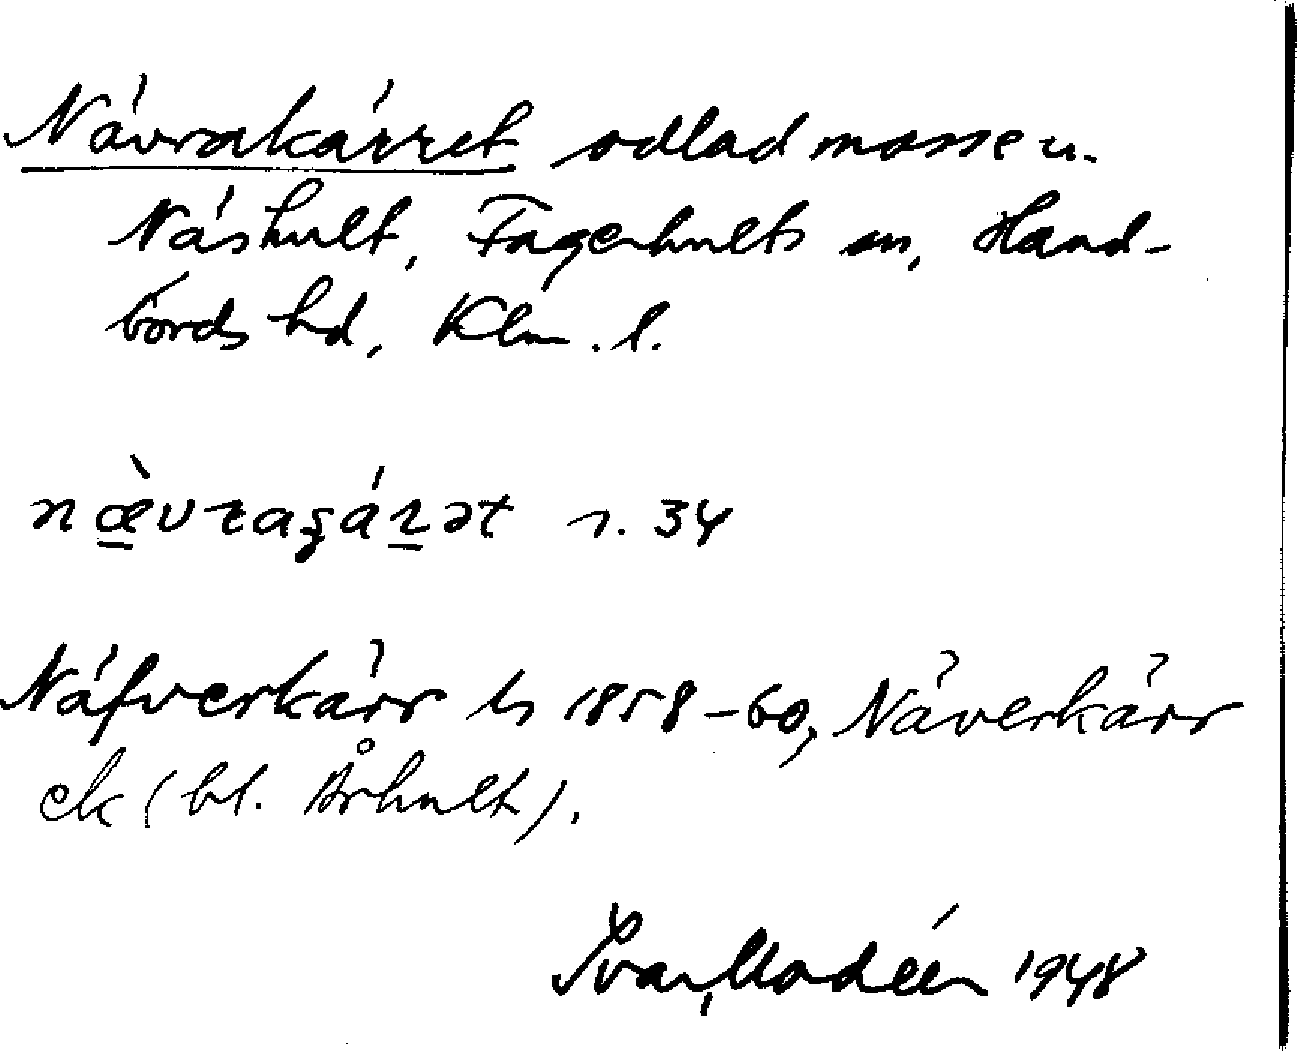 Nävrakärret odlad mosse u.
Näshult, Fagerhults sn, Hand-
börds hd, Klm. l.
nævragárət r. 34
Näfverkärr ls 1858-60, Näverkärr
ek (bl. Århult).
Ivar Modéer 1948